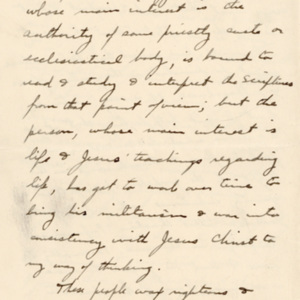 whose main interest is the
authority of some priestly caste or
ecclesiastical body, is bound to
read & study & interpret the Scriptures
from that point of view; but the
person, whose main interest is
life & Jesus' teachings regarding
life, has got to work over time to
bring his militarism & war into
consistency with Jesus Christ to
my way of thinking.
These people wax righteous &